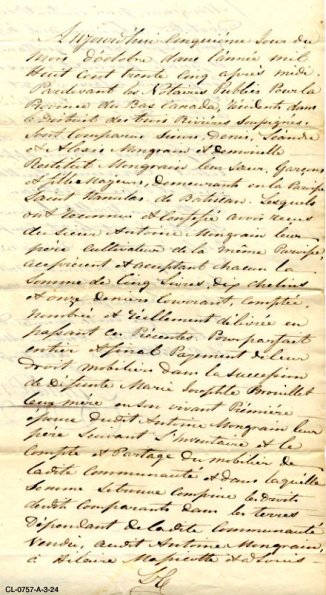 Aujourdhui cinquième Jour du
mois d'octobre dans l'année mil
Huit Cent trente Cinq après midi
Pardevant les Notaires Publics Pour la
Province du Bas Canada, résidents dans
le District des trois Rivières Soussignés.
Sont Comparus Sieurs Denis, Léandre
et Alexis Mongrain et demoiselle
Mongrain leur Sœur, Garçons
et fille Majeurs, demeurants en la Paroisse
Saint Stanislas de Batiscan. Lesquels
ont reconnu et Confessé avoir reçu
du Sieur Antoine Mongrain leur
père Cultivateur de la même Paroisse
ace présent et acceptant chacun la
Somme de Cinq Livres, dix chelins
et onze deniers Courant, Comptée
Nombrée et réellement délivrée en
passant Ces Présentes. Pour parfait
entier et final Payement de leur
Droit mobilier dans la Succession
de défunte Marie Josephte Brouillet
leur mère en son vivant Première
épouse dudit Antoine Mongrain leur
père Suivant l'Inventaire et le
Compte et Partage du mobilier de
la dite Communauté et dans laquelle
Somme Se trouve Comprise les droits
desdits Comparants dans les terres
Dépendant de la dite Communauté
Vendu, audit Antoine Mongrain,
à Hilaire
CL-0757-A-3-24